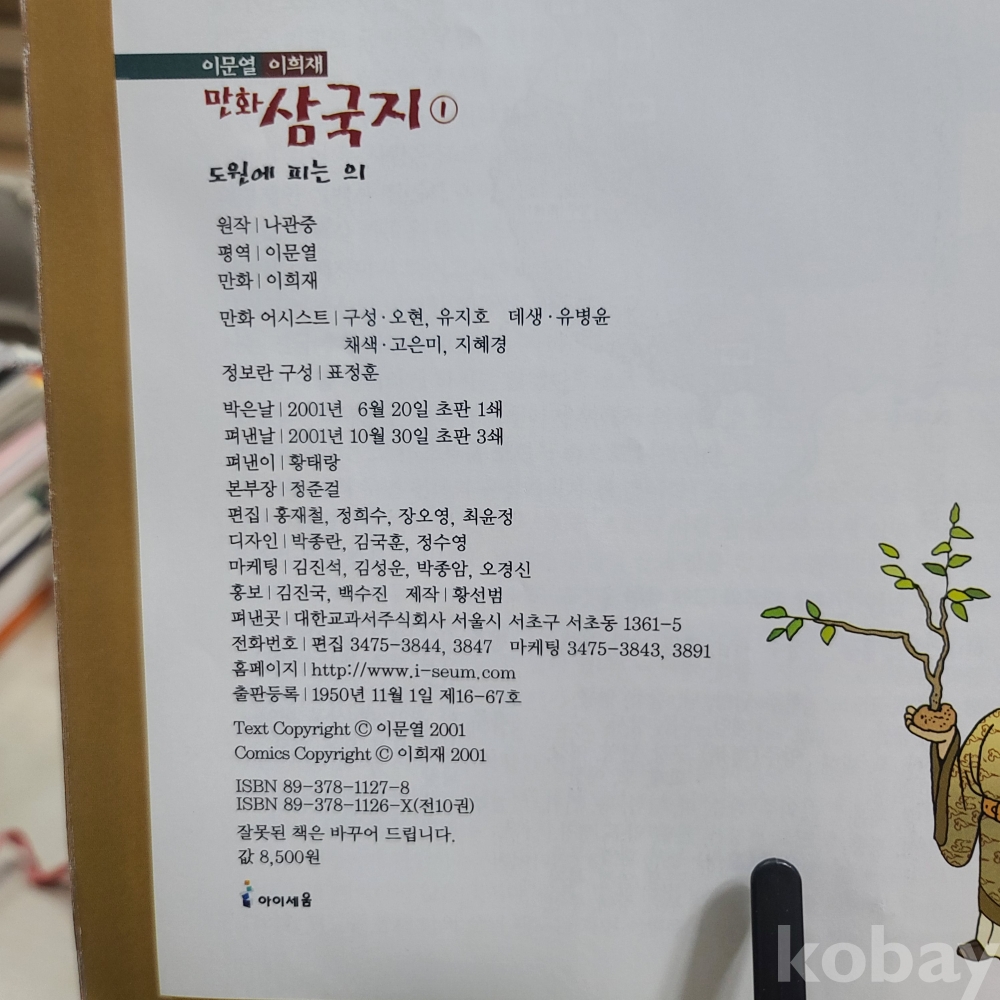 이문열 이희재
만화 삼국지 ①
도원에 피는 의
원작 | 나관중
평역 | 이문열
만화 | 이희재
만화 어시스트 | 구성·오현, 유지호 데생·유병윤
채색·고은미, 지혜경
정보란 구성 | 표정훈
박은날 | 2001년 6월 20일 초판 1쇄
펴낸날 | 2001년 10월 30일 초판 3쇄
펴낸이 | 황태랑
본부장 | 정준걸
편집 | 홍재철, 정희수, 장오영, 최윤정
디자인 | 박종란, 김국훈, 정수영
마케팅 | 김진석, 김성운, 박종암, 오경신
홍보 | 김진국, 백수진 제작 | 황선범
펴낸곳 | 대한교과서주식회사 서울시 서초구 서초동 1361-5
전화번호 | 편집 3475-3844, 3847 마케팅 3475-3843, 3891
홈페이지 | http://www.i-seum.com
출판등록 | 1950년 11월 1일 제16-67호
Text Copyright ⓒ 이문열 2001
Comics Copyright ⓒ 이희재 2001
ISBN 89-378-1127-8
ISBN 89-378-1126-X(전10권)
잘못된 책은 바꾸어 드립니다.
값 8,500원
아이세움
kobay